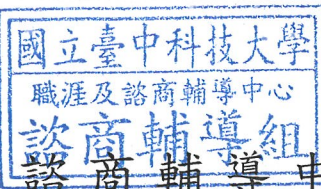 國立臺中科技大學
職涯及諮商輔導中心
諮商輔導組
諮商輔導中